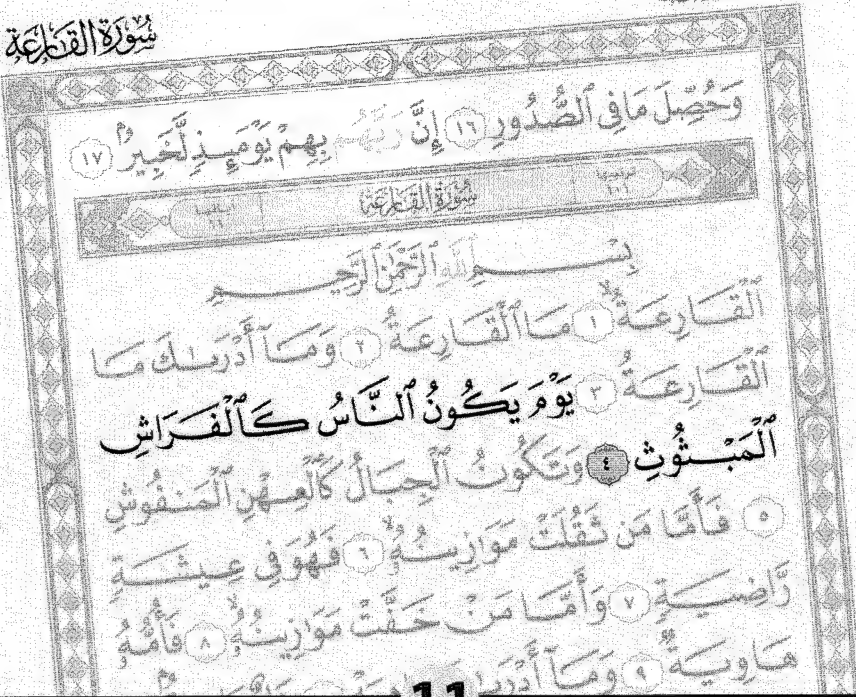 سُورَةُ القَارِعَةِ
وَحُصِّلَ مَا فِي ٱلصُّدُورِ ١٦ إِنَّ رَبَّهُم بِهِمْ يَوْمَئِذٍ لَّخَبِيرٌۢ ١٧
سُورَةُ القَارِعَةِ
بِسْمِ ٱللَّهِ ٱلرَّحْمَٰنِ ٱلرَّحِيمِ
ٱلْقَارِعَةُ ١ مَا ٱلْقَارِعَةُ ٢ وَمَآ أَدْرَىٰكَ مَا
ٱلْقَارِعَةُ ٣ يَوْمَ يَكُونُ ٱلنَّاسُ كَٱلْفَرَاشِ
ٱلْمَبْثُوثِ ٤ وَتَكُونُ ٱلْجِبَالُ كَٱلْعِهْنِ ٱلْمَنفُوشِ
٥ فَأَمَّا مَن ثَقُلَتْ مَوَٰزِينُهُۥ ٦ فَهُوَ فِى عِيشَةٍ
رَّاضِيَةٍ ٧ وَأَمَّا مَنْ خَفَّتْ مَوَٰزِينُهُۥ ٨ فَأُمُّهُۥ
هَاوِيَةٌ ٩ وَمَآ أَدْرَىٰكَ
11